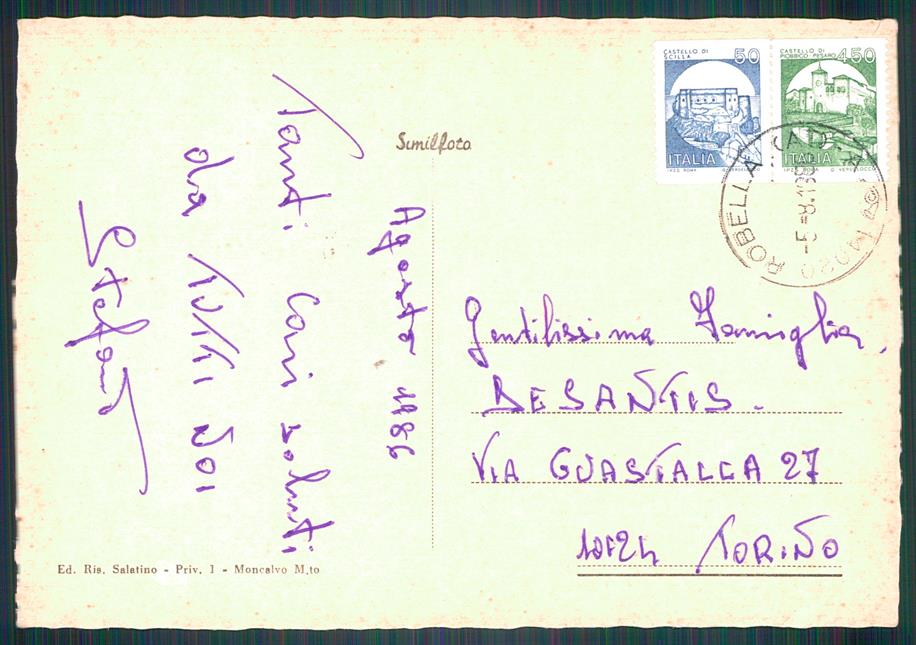 CASTELLO DI
SCILLA
50
ITALIA
CASTELLO DI
PIOBBICO - PESARO
450
ITALIA
14020 ROBELLA
-5-8.198
Similfoto
Agosto 1986
Tanti cari saluti
da tutti noi
Gentilissima Famiglia
DESANTIS.
VIA GUASTALLA 27
10124 TORINO
Ed. Ris. Salatino - Priv. 1 - Moncalvo M.to